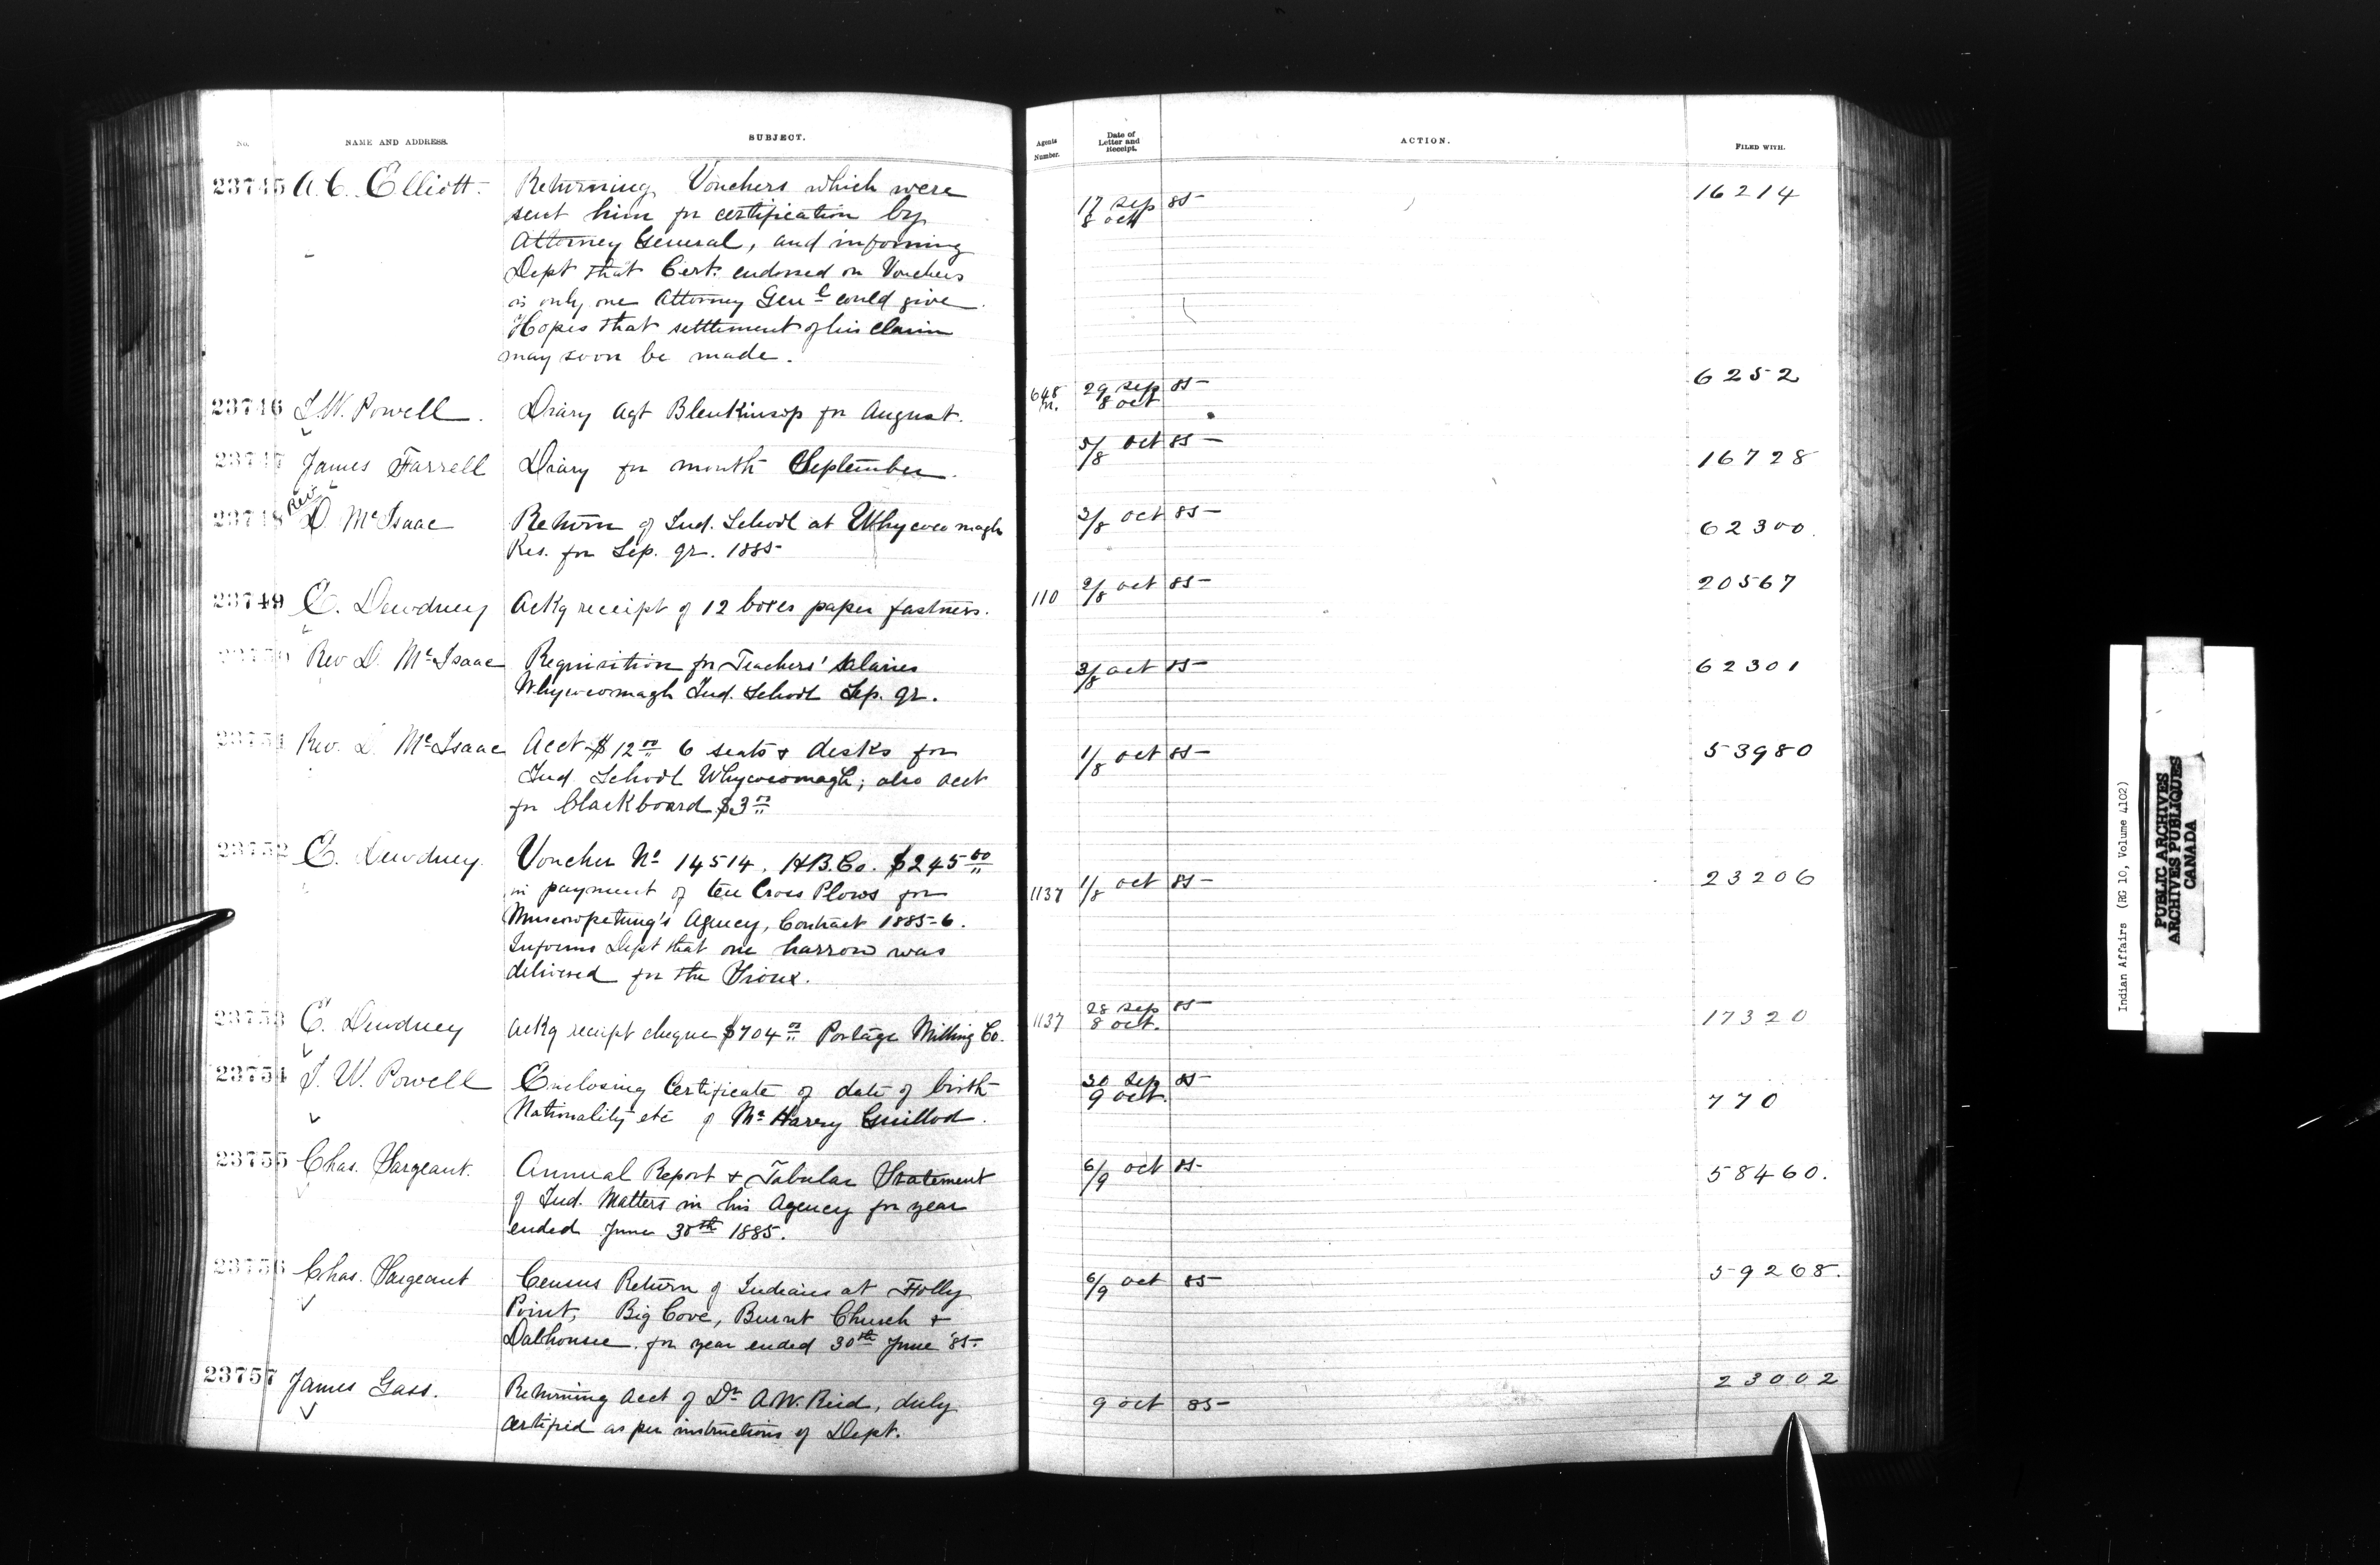 No. NAME AND ADDRESS. SUBJECT. Agents Number. Date of Letter and Receipt. ACTION. FILED WITH.
23745 A.C. Elliott. Returning Vouchers which were 17 Sep 85 16214
sent him for certification by 8 oct
Attorney General, and informing
Dept that Cert. endorsed on Vouchers
is only one Attorney Genl could give.
Hopes that settlement of his claim
may soon be made.
23746 I.W. Powell. Diary Agt Blenkinsop for August. 648 29 Sep 85 6252
8 oct
23747 James Farrell Diary for month September. 5/8 oct 85 16728
23748 Rev D. McIsaac Return of Ind. School at Whycocomagh 3/8 oct 85 62300.
Res. for Sep. qr. 1885
23749 E. Dewdney Ackg receipt of 12 boxes paper fastners. 110 2/8 oct 85 20567
23750 Rev D. McIsaac Requisition for Teachers' Salaries 3/8 oct 85 62301
Whycocomagh Ind. School Sep. qr.
23751 Rev. D. McIsaac Acct $12.00 6 seats & desks for 1/8 oct 85 53980
Ind School Whycocomagh; also acct
for blackboard $3.00
23752 E. Dewdney. Voucher No 14514. H.B.Co. $245.00
in payment of ten Cross Plows for 1137 1/8 oct 85 23206
Muscowpetung's Agency, Contract 1885-6.
Informs Dept that one harrow was
delivered for the Sioux.
23753 E. Dewdney Ackg receipt cheque $704.00 Portage Milling Co. 1137 28 Sep 85 17320
8 oct.
23754 I. W. Powell Enclosing Certificate of date of birth 30 Sep 85 770
Nationality etc of Mr Harry Guillod. 9 oct.
23755 Chas. Sargeant. Annual Report & Tabular Statement 6/9 oct 85 58460.
of Ind. Matters in his Agency for year
ended June 30th 1885.
23756 Chas. Sargeant Census Return of Indians at Folly 6/9 oct 85 59268.
Point, Big Cove, Burnt Church &
Dalhousie. for year ended 30th June '85.
23757 James Gass. Returning Acct of Dr A.W. Reid, duly 9 oct 85 23002
certified as per instructions of Dept.
Indian Affairs (RG 10, Volume 4102)
PUBLIC ARCHIVES
ARCHIVES PUBLIQUES
CANADA